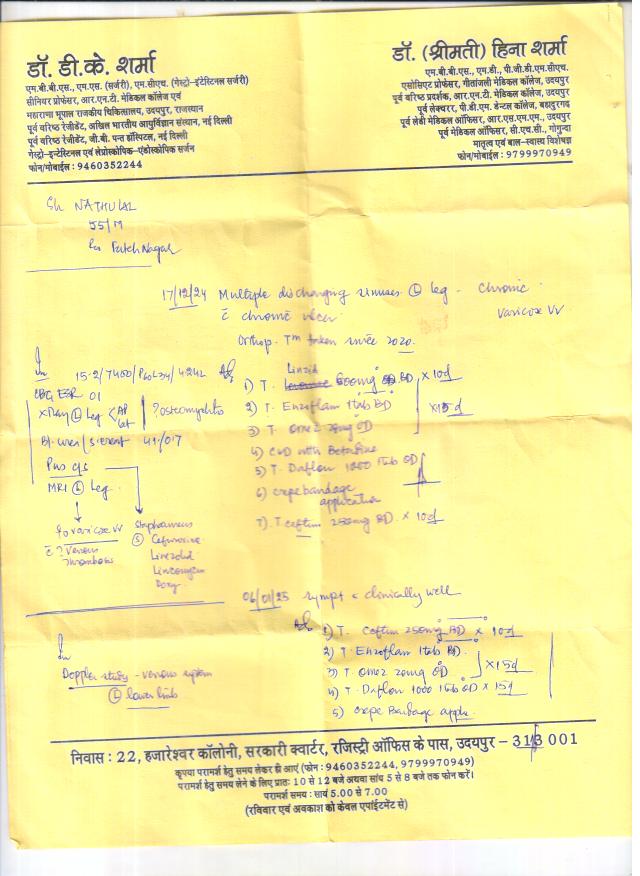 डॉ. डी.के. शर्मा
एम.बी.बी.एस., एम.एस. (सर्जरी), एम.सीएच. (गेस्ट्रो-इंटेस्टिनल सर्जरी)
सीनियर प्रोफेसर, आर.एन.टी. मेडिकल कॉलेज एवं
महाराणा भूपाल राजकीय चिकित्सालय, उदयपुर, राजस्थान
पूर्व वरिष्ठ रेजीडेंट, अखिल भारतीय आयुर्विज्ञान संस्थान, नई दिल्ली
पूर्व वरिष्ठ रेजीडेंट, जी.बी. पन्त हॉस्पिटल, नई दिल्ली
गेस्ट्रो-इन्टेस्टिनल एवं लेप्रोस्कोपिक-एंडोस्कोपिक सर्जन
फोन/मोबाईल : 9460352244
डॉ. (श्रीमती) हिना शर्मा
एम.बी.बी.एस., एम.डी., पी.जी.डी.एम.सीएच.
एसोसिएट प्रोफेसर, गीतांजली मेडिकल कॉलेज, उदयपुर
पूर्व वरिष्ठ प्रदर्शक, आर.एन.टी. मेडिकल कॉलेज, उदयपुर
पूर्व लेक्चरर, पी.डी.एम. डेन्टल कॉलेज, बहादुरगढ़
पूर्व लेडी मेडिकल ऑफिसर, आर.एस.एम.एम., उदयपुर
पूर्व मेडिकल ऑफिसर, सी.एच.सी., गोगुन्दा
मातृत्व एवं बाल-स्वास्थ्य विशेषज्ञ
फोन/मोबाईल : 9799970949
Sh NATHULAL
55/M
Fateh Nagar
17/12/24 Multiple discharging sinuses Ⓛ leg - Chronic
c̄ chronic ulcer
Varicose VV
Orthop. Tm taken since 2020.
15.2/7400/P60L34/4.242
CBG ESR 01
X Ray Ⓛ Leg < AP Lat ? osteomyelitis
Bl. urea / S. creat 41/0.7
Pus c/s
MRI Ⓛ Leg
varicose VV
c̄ ? Venous thrombosis
Staphaureus
Ⓢ Cefuroxime
Linezolid
Lincomycin
Doxy
Linzid
1) T. 600mg BD × 10d
2) T. Enzoflam 1tab BD
3) T. Omez 20mg OD
× 15d
4) CWD with Betadine
5) T. Daflon 1000 1tab OD
6) crepe bandage application
7) T Ceftum 250mg BD × 10d
06/01/25 sympt & clinically well
1) T. Ceftum 250mg BD × 10d
2) T. Enzoflam 1tab BD
3) T. Omez 20mg OD
× 15d
4) T. Daflon 1000 1tab OD × 15d
5) crepe Bandage applic.
Doppler study - venous system
Ⓛ lower limb
निवास : 22, हजारेश्वर कॉलोनी, सरकारी क्वार्टर, रजिस्ट्री ऑफिस के पास, उदयपुर - 313 001
कृपया परामर्श हेतु समय लेकर ही आएं (फोन : 9460352244, 9799970949)
परामर्श हेतु समय लेने के लिए प्रात: 10 से 12 बजे अथवा सांय 5 से 8 बजे तक फोन करें।
परामर्श समय : सायं 5.00 से 7.00
(रविवार एवं अवकाश को केवल एपाईंटमेंट से)